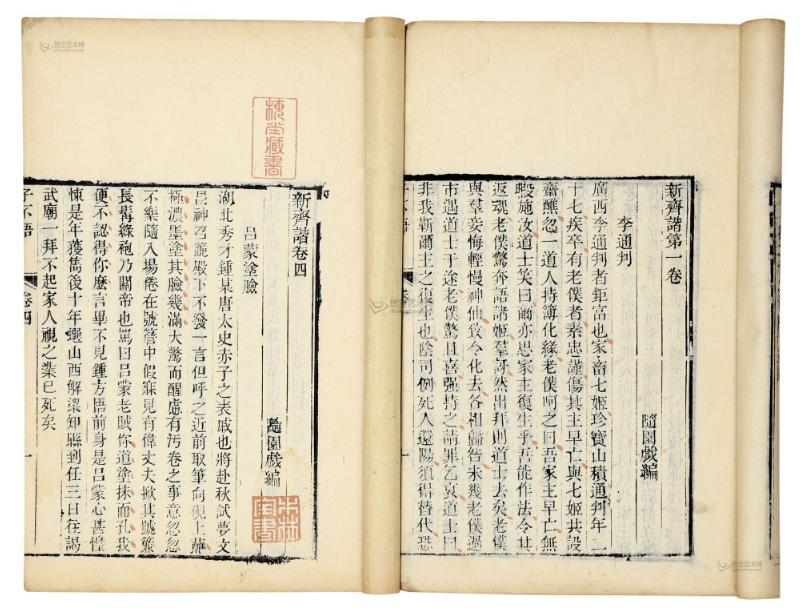 新齊諧第一卷
隨園戲編
李通判
廣西李通判者鉅富也家畜七姬珍寶山積通判年二
十七疾卒有老僕者素忠謹傷其主早亡與七姬共設
齋醮忽一道人持簿化緣老僕呵之曰吾家主早亡無
暇施汝道士笑曰爾亦思家主復生乎吾能作法令其
返魂老僕驚奔語諸姬羣訝然出拜則道士去矣老僕
與羣妾悔輕慢神仙致令化去各相歸咎未幾老僕過
市遇道士于途老僕驚且喜強持之請罪乞哀道士曰
非我靳爾主之復生也陰司例死人還陽須得替代恐
新齊諧卷四
隨園戲編
呂蒙塗臉
湖北秀才鍾某唐太史赤子之表戚也將赴秋試夢文
昌神召跪殿下不發一言但呼之近前取筆向硯上蘸
極濃墨塗其臉幾滿大驚而醒慮有污卷之事意忽忽
不樂隨入場倦在號簷中假寐見有偉丈夫掀其號簾
長髯綠袍乃關帝也罵曰呂蒙老賊你道塗抹面孔我
便不認得你麼言畢不見鍾方悟前身是呂蒙心甚惶
悚是年獲雋後十年選山西解梁知縣到任三日往謁
武廟一拜不起家人視之業已死矣
子不語 卷四 一